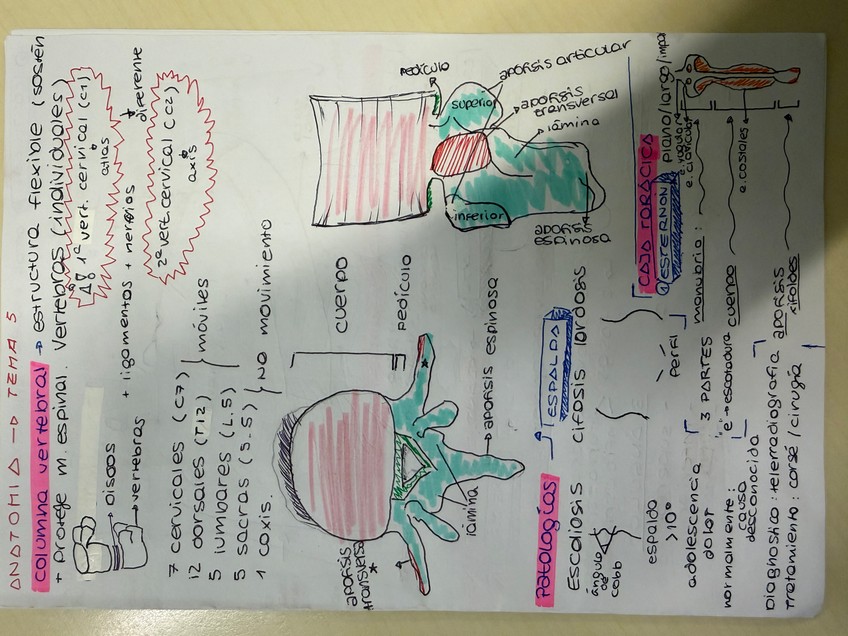 ANATOMIA → TEMA 5
columna vertebral → estructura flexible (sostén
+ protege m. espinal. Vertebras (individuales)
discos
vertebras
+ ligamentos + nervios
1ª vert. cervical (C1)
atlas
diferente
2ª vert. cervical (C2)
axis
7 cervicales (C7)
12 dorsales (T12)
5 lumbares (L.5)
móviles
5 sacras (S.5)
1 coxis.
NO movimiento
cuerpo
pedículo
apofisis espinosa
lámina
apofisis
transversa
pedículo
superior
inferior
apofisis articular
apofisis
transversal
lámina
apofisis
espinosa
Patologías
ESPALDA
Escoliosis
cifosis
lordosis
ángulo
de
cobb
espalda
>10º
Perfil
adolescencia
dolor
normalmente:
causa
desconocida
Diagnostico: telerradiografia
Tretamiento: corsé / cirugía
CAJA TORÁCICA
① ESTERNON
plano/largo/impar
3 PARTES
manubrio:
e. clavicular
cuerpo
e. costales
apófisis
xifoides